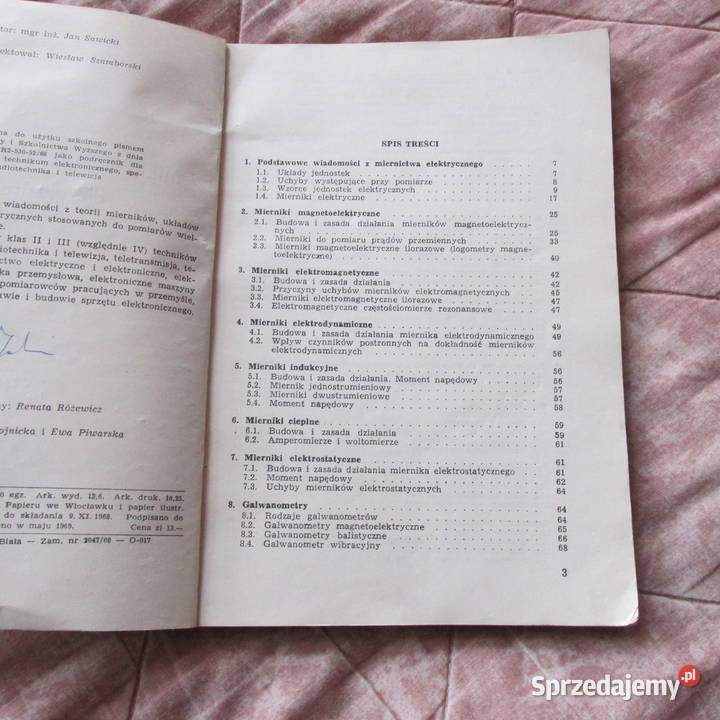 tor: mgr inż. Jan Sawicki
ektował: Wiesław Szamborski
na do użytku szkolnego pismem
y i Szkolnictwa Wyższego z dnia
R2-530-52/68 jako podręcznik dla
technikum elektronicznego, spe-
diotechnika i telewizja
wiadomości z teorii mierników, układów
rycznych stosowanych do pomiarów wiel-
e.
klas II i III (względnie IV) techników
iotechnika i telewizja, teletransmisja, te-
nictwo elektryczne i elektroniczne, elek-
ka przemysłowa, elektroniczne maszyny
pomiarowców pracujących w przemyśle,
awie i budowie sprzętu elektronicznego.
y: Renata Różewicz
ojnicka i Ewa Piwarska
0 egz. Ark. wyd. 13,6. Ark. druk. 16,25.
Papieru we Włocławku i papier ilustr.
do składania 9. XI. 1968. Podpisano do
ono w maju 1969. Cena zł 13.—
Biała — Zam. nr 2047/68 — O-017
SPIS TREŚCI
1. Podstawowe wiadomości z miernictwa elektrycznego 7
1.1. Układy jednostek 7
1.2. Uchyby występujące przy pomiarze 8
1.3. Wzorce jednostek elektrycznych 9
1.4. Mierniki elektryczne 17
2. Mierniki magnetoelektryczne 25
2.1. Budowa i zasada działania mierników magnetoelektrycz-
nych 25
2.2. Mierniki do pomiaru prądów przemiennych 33
2.3. Mierniki magnetoelektryczne ilorazowe (logometry magne-
toelektryczne) 40
3. Mierniki elektromagnetyczne 42
3.1. Budowa i zasada działania 42
3.2. Przyczyny uchybów mierników elektromagnetycznych 45
3.3. Mierniki elektromagnetyczne ilorazowe 47
3.4. Elektromagnetyczne częstościomierze rezonansowe 47
4. Mierniki elektrodynamiczne 49
4.1. Budowa i zasada działania miernika elektrodynamicznego 49
4.2. Wpływ czynników postronnych na dokładność mierników
elektrodynamicznych 56
5. Mierniki indukcyjne 56
5.1. Budowa i zasada działania. Moment napędowy 56
5.2. Miernik jednostrumieniowy 57
5.3. Mierniki dwustrumieniowe 57
5.4. Moment napędowy 58
6. Mierniki cieplne 59
6.1. Budowa i zasada działania 59
6.2. Amperomierze i woltomierze 61
7. Mierniki elektrostatyczne 61
7.1. Budowa i zasada działania miernika elektrostatycznego 61
7.2. Moment napędowy 62
7.3. Uchyby mierników elektrostatycznych 64
8. Galwanometry 64
8.1. Rodzaje galwanometrów 64
8.2. Galwanometry magnetoelektryczne 65
8.3. Galwanometry balistyczne 66
8.4. Galwanometr wibracyjny 68
3
Sprzedajemy.pl